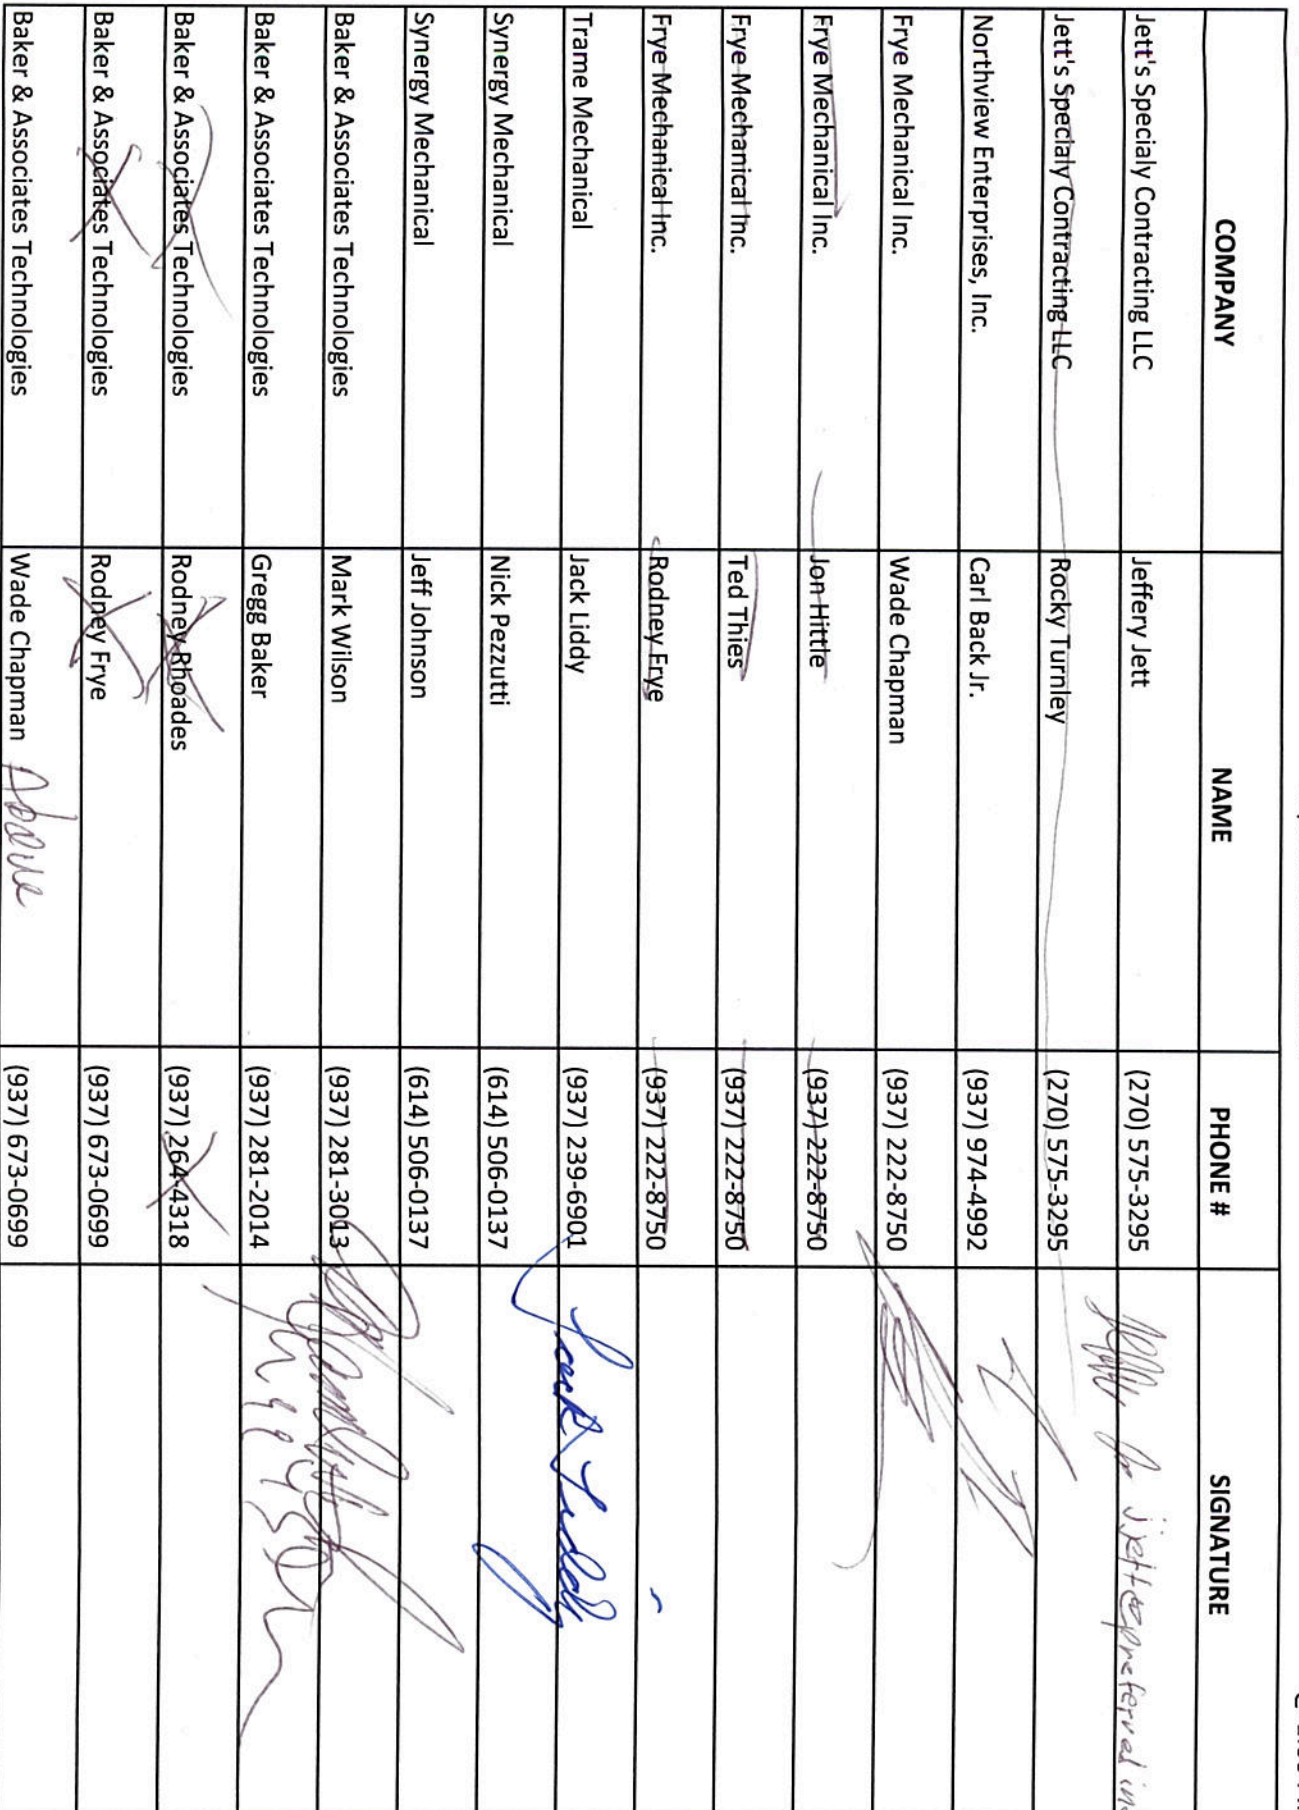 COMPANY NAME PHONE # SIGNATURE
Jett's Specialy Contracting LLC Jeffery Jett (270) 575-3295
Jett's Specialy Contracting LLC Rocky Turnley (270) 575-3295
Northview Enterprises, Inc. Carl Back Jr. (937) 974-4992
Frye Mechanical Inc. Wade Chapman (937) 222-8750
Frye Mechanical Inc. Jon Hittle (937) 222-8750
Frye Mechanical Inc. Ted Thies (937) 222-8750
Frye Mechanical Inc. Rodney Frye (937) 222-8750
Trame Mechanical Jack Liddy (937) 239-6901 Jack Liddy
Synergy Mechanical Nick Pezzutti (614) 506-0137
Synergy Mechanical Jeff Johnson (614) 506-0137
Baker & Associates Technologies Mark Wilson (937) 281-3013
Baker & Associates Technologies Gregg Baker (937) 281-2014
Baker & Associates Technologies Rodney Rhoades (937) 264-4318
Baker & Associates Technologies Rodney Frye (937) 673-0699
Baker & Associates Technologies Wade Chapman Above (937) 673-0699